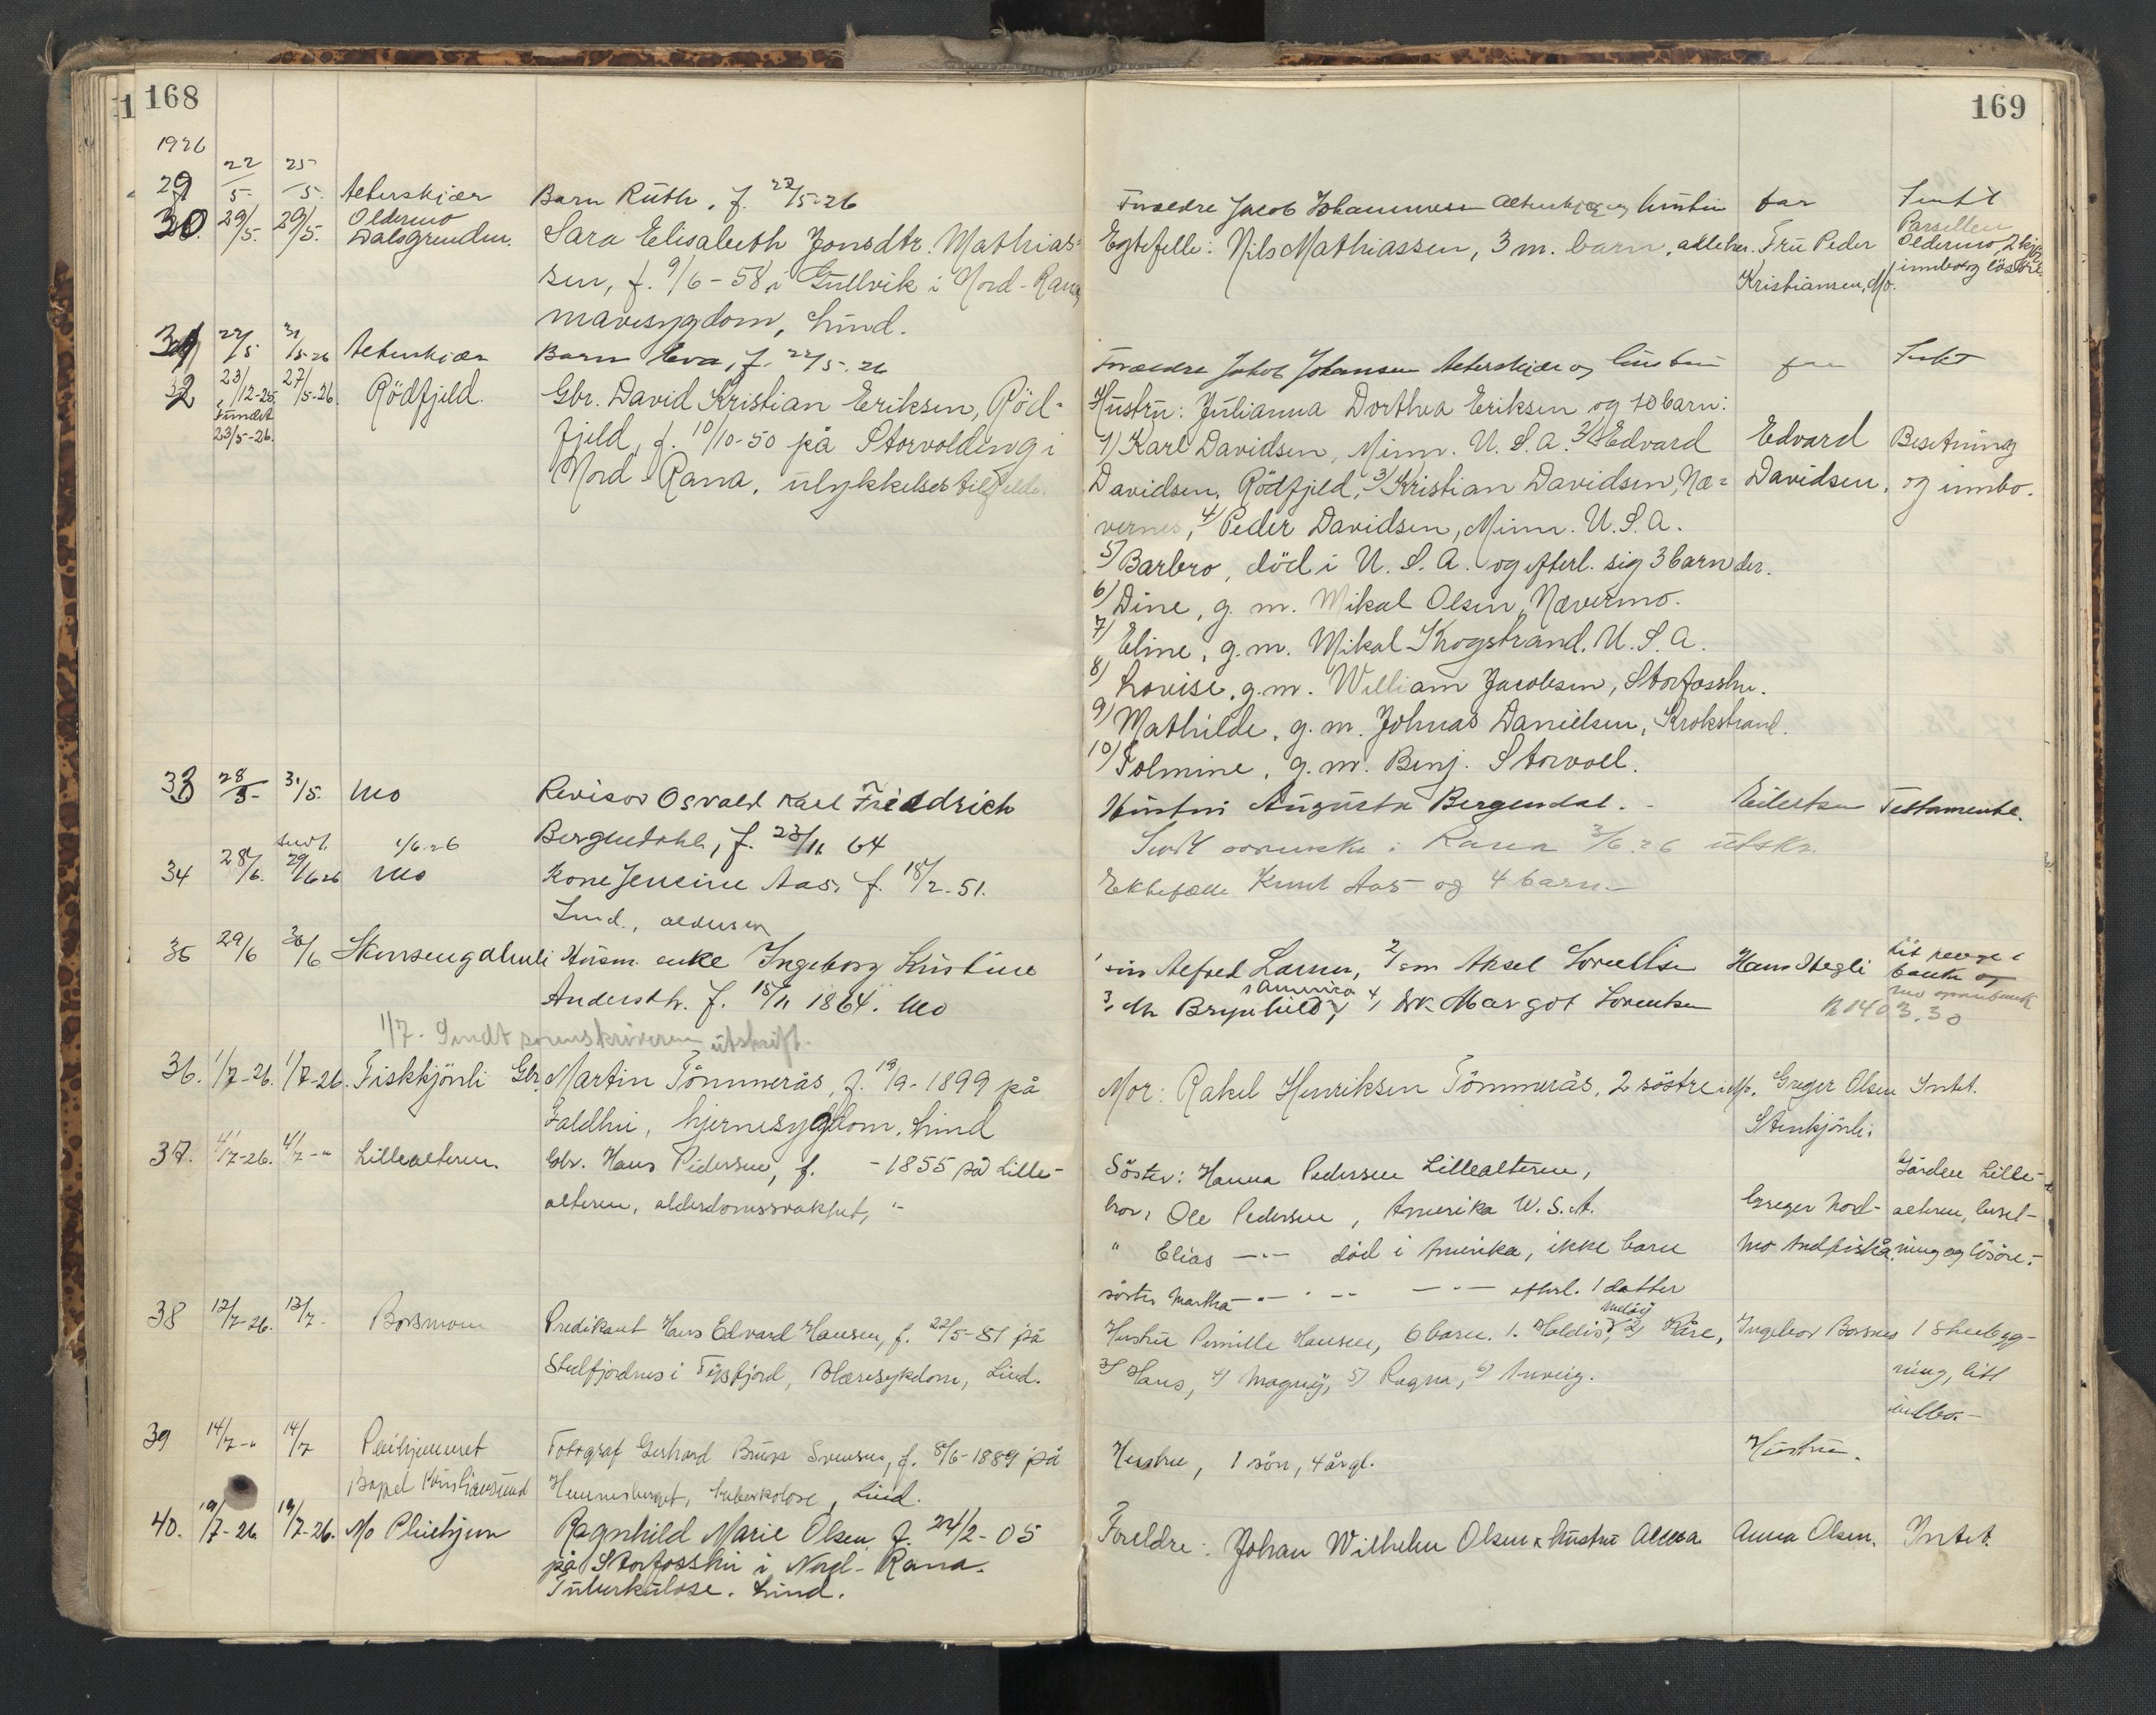 168
1926
29 22/5 25/5 Alterskjær Barn Ruth, f. 22/5-26
30. 29/5. 29/5. Oldermo
Dalsgrenden. Sara Elisabeth Jonsdtr. Mathias-
sen, f. 9/6-58, i Gullvik i Nord-Rana,
mavesygdom, Lund.
31 22/5 31/5-26 Alterskjær Barn Eva, f. 22/5.26
32 23/12-25, 27/5-26. Rödfjeld. Gbr. David Kristian Eriksen, Röd-
fundet
23/5-26. fjeld, f. 10/10-50 på Storvoldeng i
Nord-Rana, ulykkelsestilfelde.
33 28/5- 31/5. Mo Revisor Osvald Karl Friedrich
1/6-26 Bergendahl, f. 23/11 64
34 28/6. 29/6 26 Mo Kone Jensine Aas, f. 18/2-51.
Lund., alderdom
35 29/6 30/6 Stensengahuli Husm. enke Ingeborg Kristine
Andersdtr. f. 15/11 1864. Mo
1/7. Sendt sorenskriveren utskrift.
36. 1/7-26. 1/7-26. Fiskkjönli Gbr. Martin Tömmerås, f. 19/9-1899 på
Faldhei, hjernesygdom. Lund
37. 4/7-26. 4/7-" Lillealteren. Gbr. Hans Pedersen, f. -1855 på Lille-
alteren, alderdomssvakhet, "-
38 12/7-26. 13/7- Borsmoen Predikant Hans Edvard Hansen, f. 22/5-81 på
Stelfjordnes i Tysfjord, Blæresykdom, Lund.
39 14/7-" 14/7 Pleihjemmet Fotograf Gerhard Brun Svensen, f. 8/6-1889 på
Bopel Kristiansund Hemnesberget, tuberkolose, Lund.
40. 19/7-26 19/7-26. Mo Pleiehjem Ragnhild Marie Olsen, f. 24/2-05
på Storfosshei i Nord-Rana.
Tuberkulose. Lund.
169
Forældre Jacob Johannesen Alterskjær og hustru far Intet
Egtefelle: Nils Mathiassen, 3 m. barn, alle her. Fru Peder
Kristiansen, Mo. Parsellen
Oldermo, 2 kjör
innbo og lösöre
Forældre Jakob Johansen Alterskjær og hustru far Intet
Hustru: Julianna Dorthea Eriksen og 10 barn:
1) Karl Davidsen, Minn. U.S.A. 2) Edvard Edvard Besetning
Davidsen, Rödfjeld, 3) Kristian Davidsen, Næ- Davidsen, og innbo.
vernes, 4) Peder Davidsen, Minn. U.S.A.
5) Barbro, död i U.S.A. og efterl. sig 3 barn der.
6) Dine, g. m. Mikal Olsen, Nævermo.
7) Eline, g.m. Mikal Krogstrand. U.S.A.
8) Lovise, g.m. William Jacobsen, Storfosshei.
9) Mathilde, g.m. Johnas Danielsen, Krokstrand.
10) Tolmine, g.m. Benj. Storvoll.
Hustru Augusta Bergendal. - Eilertsen Testamente.
Sendt Rana 3/6 26 utskr.
Ektefælle Knut Aas og 4 barn -
1 sön Alfred Larsen, 2/ sön Aksel Lorentsen Hans Stegli litt penge i
bank
3, dtr Brynhild i Amerika, 4, dtr. Margot Lorentsen
kr 1403.30
Mor: Rakel Henriksen Tömmerås, 2 söstre i Mo. Greger Olsen Intet.
Stenkjönli.
Söster: Hanna Pedersen Lillealteren, Gården Lille-
bror: Ole Pedersen, Amerika U.S.A. Greger Nord- alteren, beset-
" Elias -"- död i Amerika, ikke barn mo Andfiskå. ning og lösöre.
söster Martha -"- -"- -"- efterl. 1 datter
Hustru Pernille Hansen, 6 barn. 1. Haldis, 2) Kåre, Ingebor Borsmo 1 Stuebygg-
3) Hans, 4) Magnhy, 5) Ragna, 6) Anveig. ning, litt
indbo.-
Hustru, 1 sön, 4 år gl. Hustru.
Foreldre: Johan Wilhelm Olsen & hustru Anna Anna Olsen. Intet.